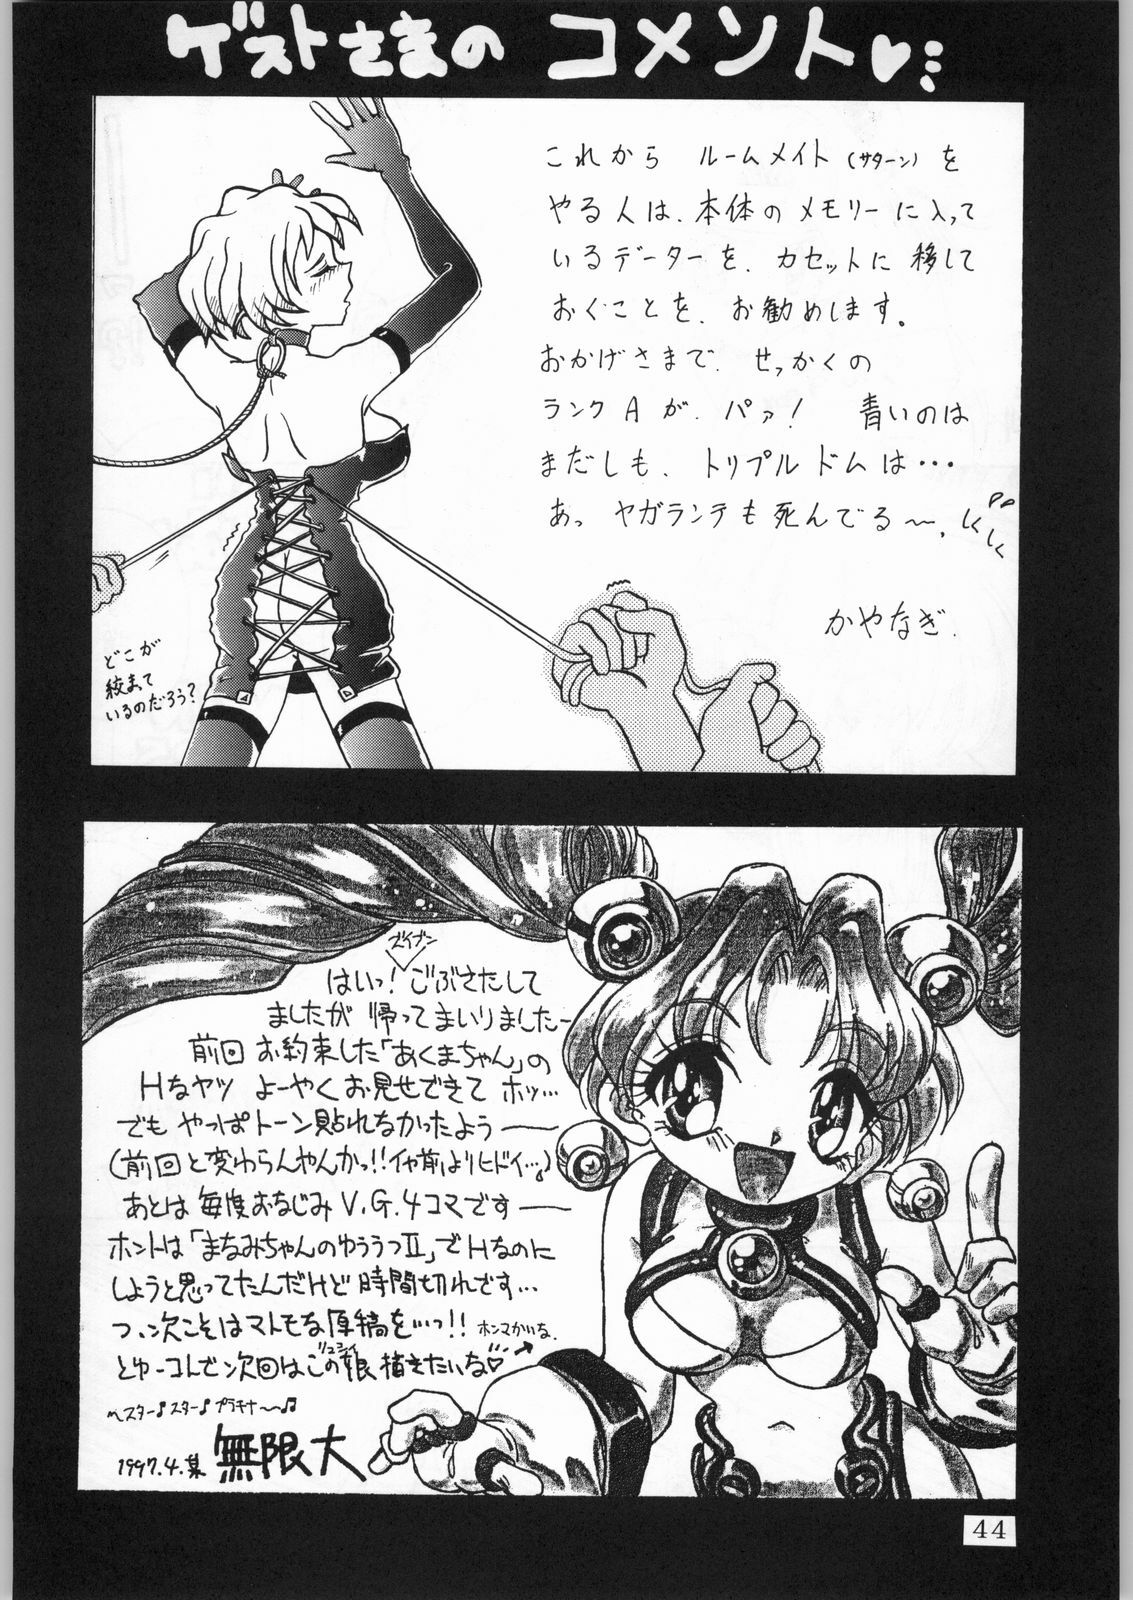 ゲストさまの コメント♡
これから ルームメイト(サターン)を
やる人は、本体のメモリーに入って
いるデーターを、カセットに移して
おくことを、お勧めします。
おかげさまで、せっかくの
ランクAが、パァ! 青いのは
まだしも、トリプルドムは・・・
あっ ヤガランテも死んでる〜、しくしく
かやなぎ.
どこが
絞まって
いるのだろう?
ズイブン
はいっ!ごぶさたして
ましたが 帰ってまいりました〜
前回 お約束した「あくまちゃん」の
Hなヤツ よーやくお見せできて ホッ…
でも やっぱトーン貼れなかったよう――
(前回と変わらんやんかっ!!イヤ前よりヒドイ…♪)
あとは 毎度おなじみ V.G.4コマです――
ホントは「まなみちゃんのゆううつII」でHなのに
しようと思ってたんだけど時間切れです…
つ、次こそはマトモな原稿を…っ!! ホンマかいな.
とゆーコトで次回はこの娘描きたいな♡…→
〜スター♪スター♪プラチナ〜〜♫
1997.4.某 無限大
44